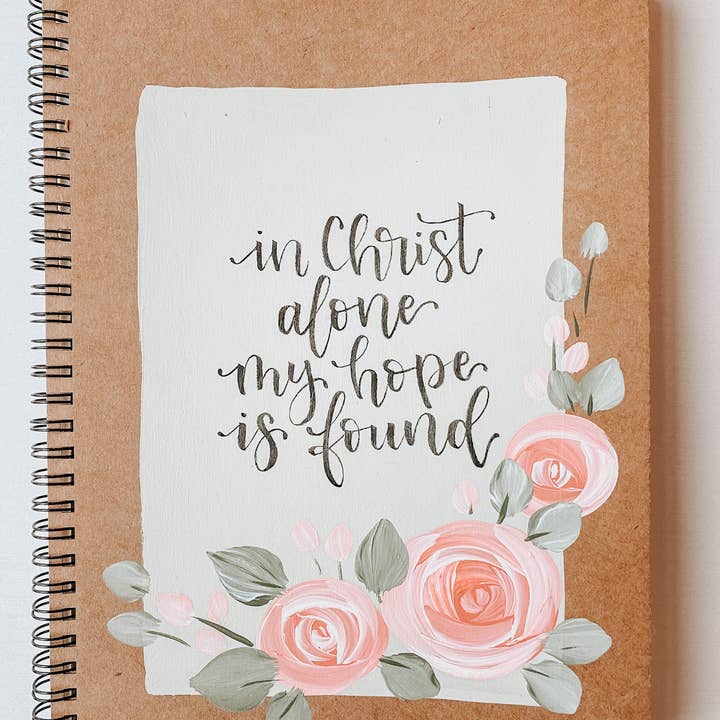 in Christ
alone
my hope
is found